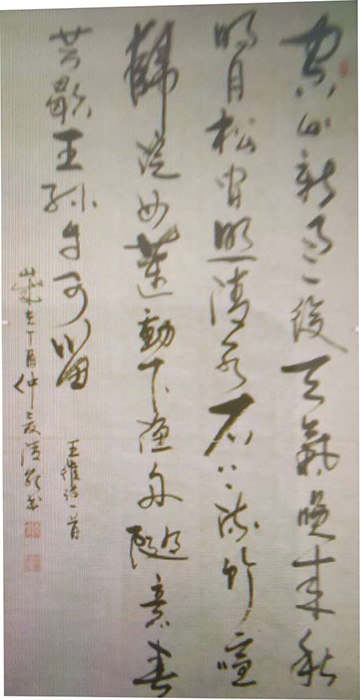 空山新雨後天氣晚來秋
明月松間照清泉石上流竹喧
歸浣女蓮動下漁舟隨意春
芳歇王孫自可留
王維詩一首
歲在丁酉仲夏